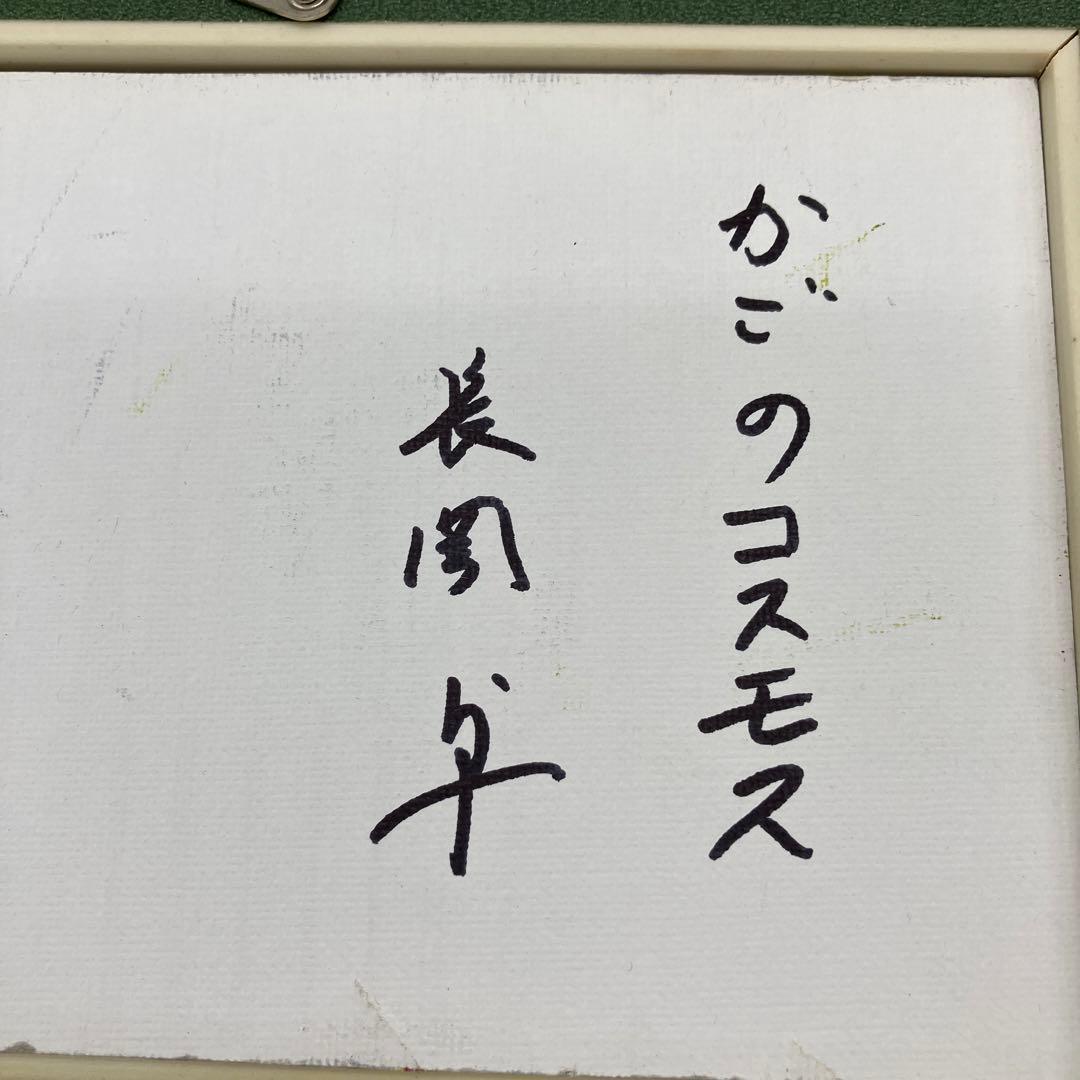 かごのコスモス
長岡 卓